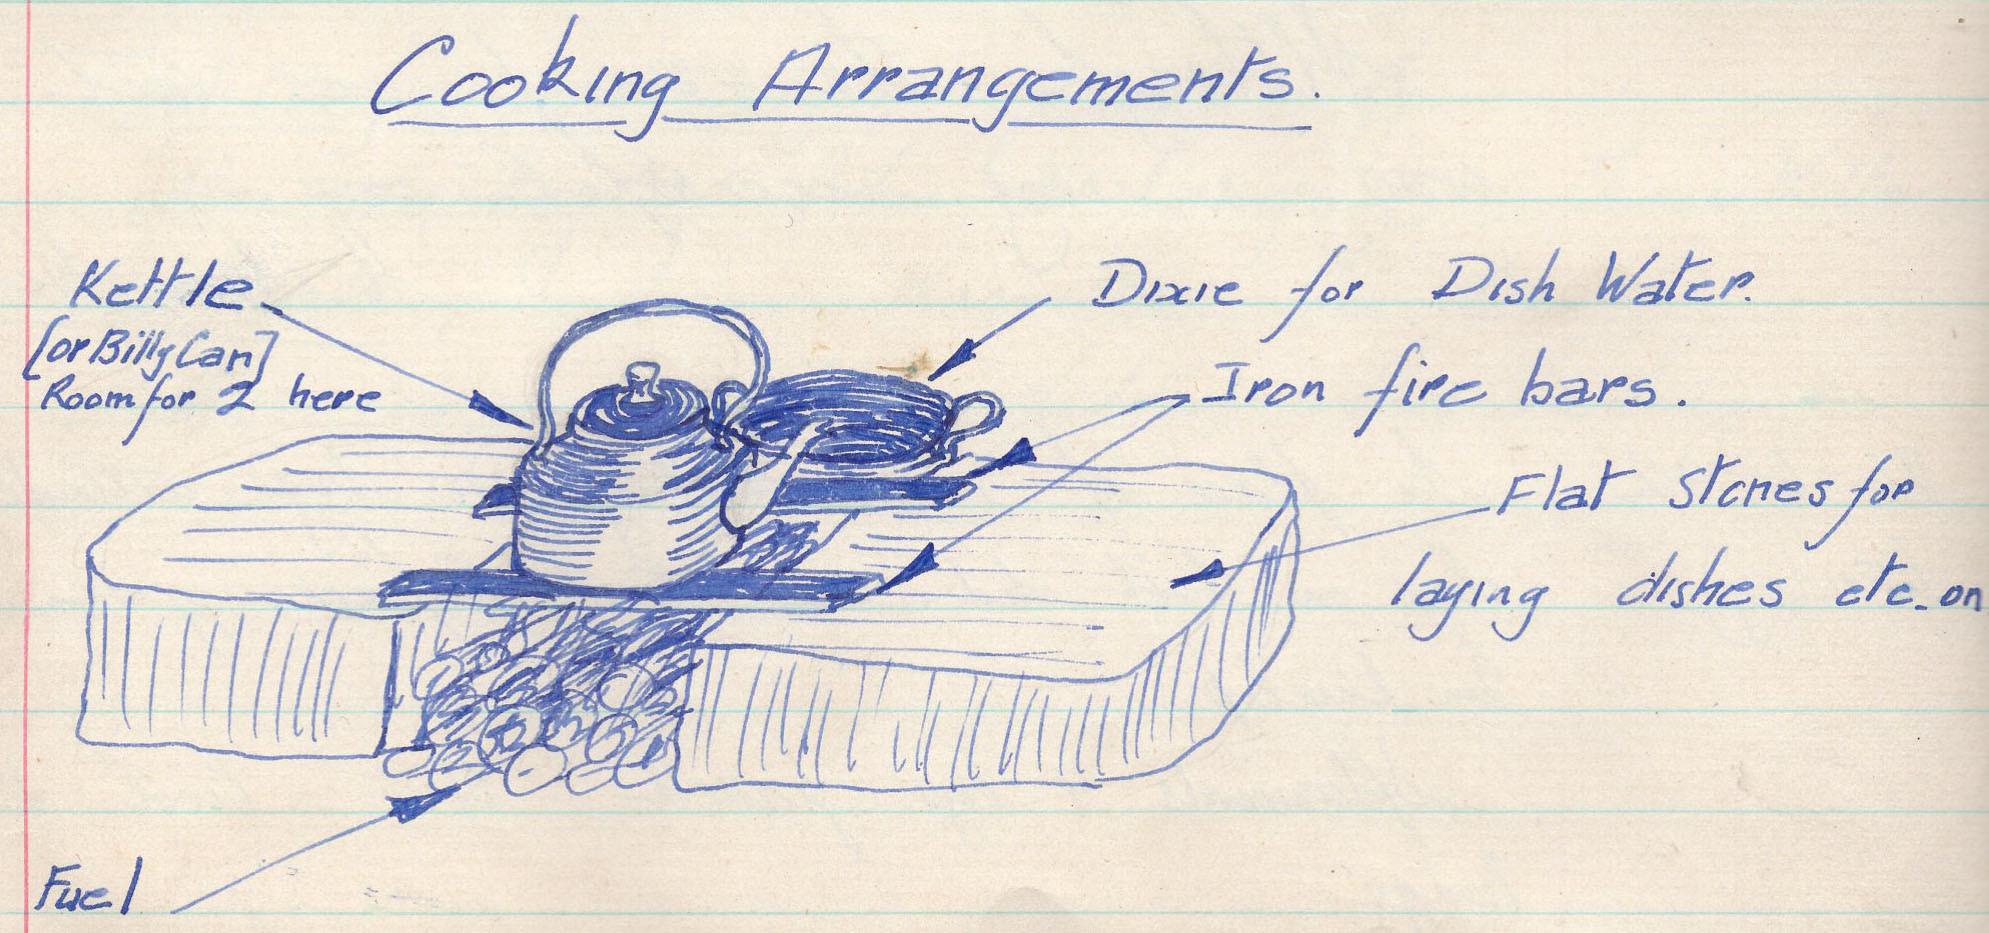 Cooking Arrangements.
Kettle
[or Billy Can]
Room for 2 here
Dixie for Dish Water.
Iron fire bars.
Flat Stones for
laying dishes etc. on
Fuel